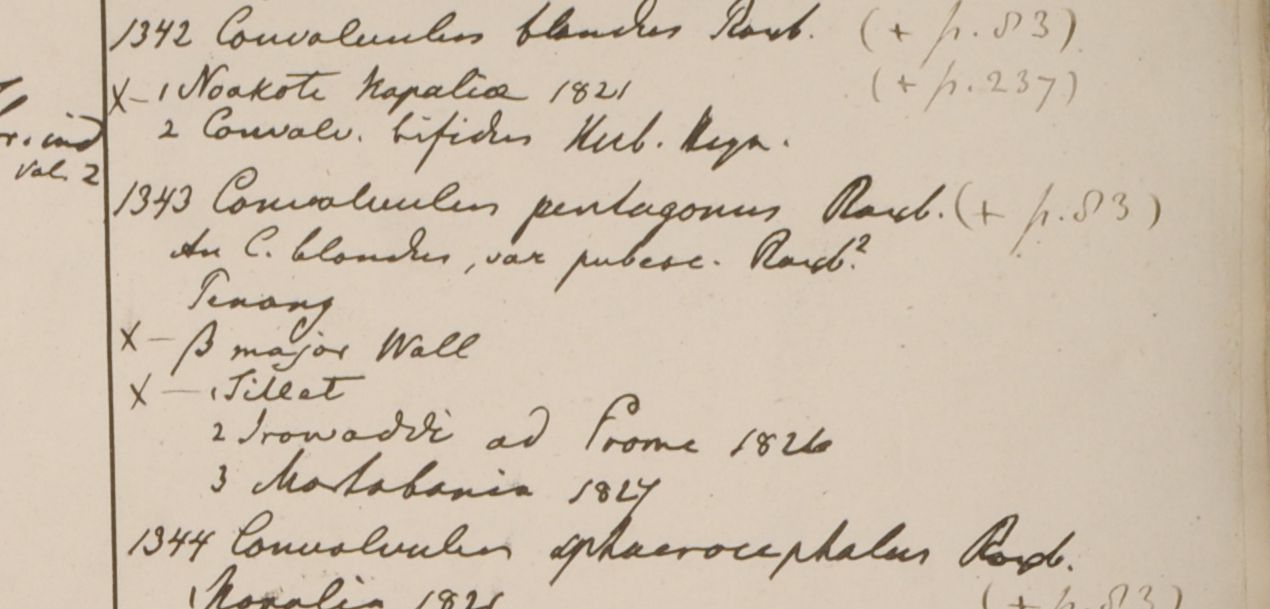 1342 Convolvulus blandus Roxb. (+ p. 83)
X- 1 Noakote Napaliæ 1821 (+ p. 237)
2 Convolv. bifidus Herb. Heyn.
r. ind
Vol. 2
1343 Convolvulus pentagonus Roxb. (+ p. 83)
An C. blandus, var pubesc. Roxb.?
Penang
X - β major Wall
X - 1 Sillet
2 Irowaddi ad Prome 1826
3 Martabania 1827
1344 Convolvulus sphaerocephalus Roxb.
1 Napalia 1821 (+ p. 83)